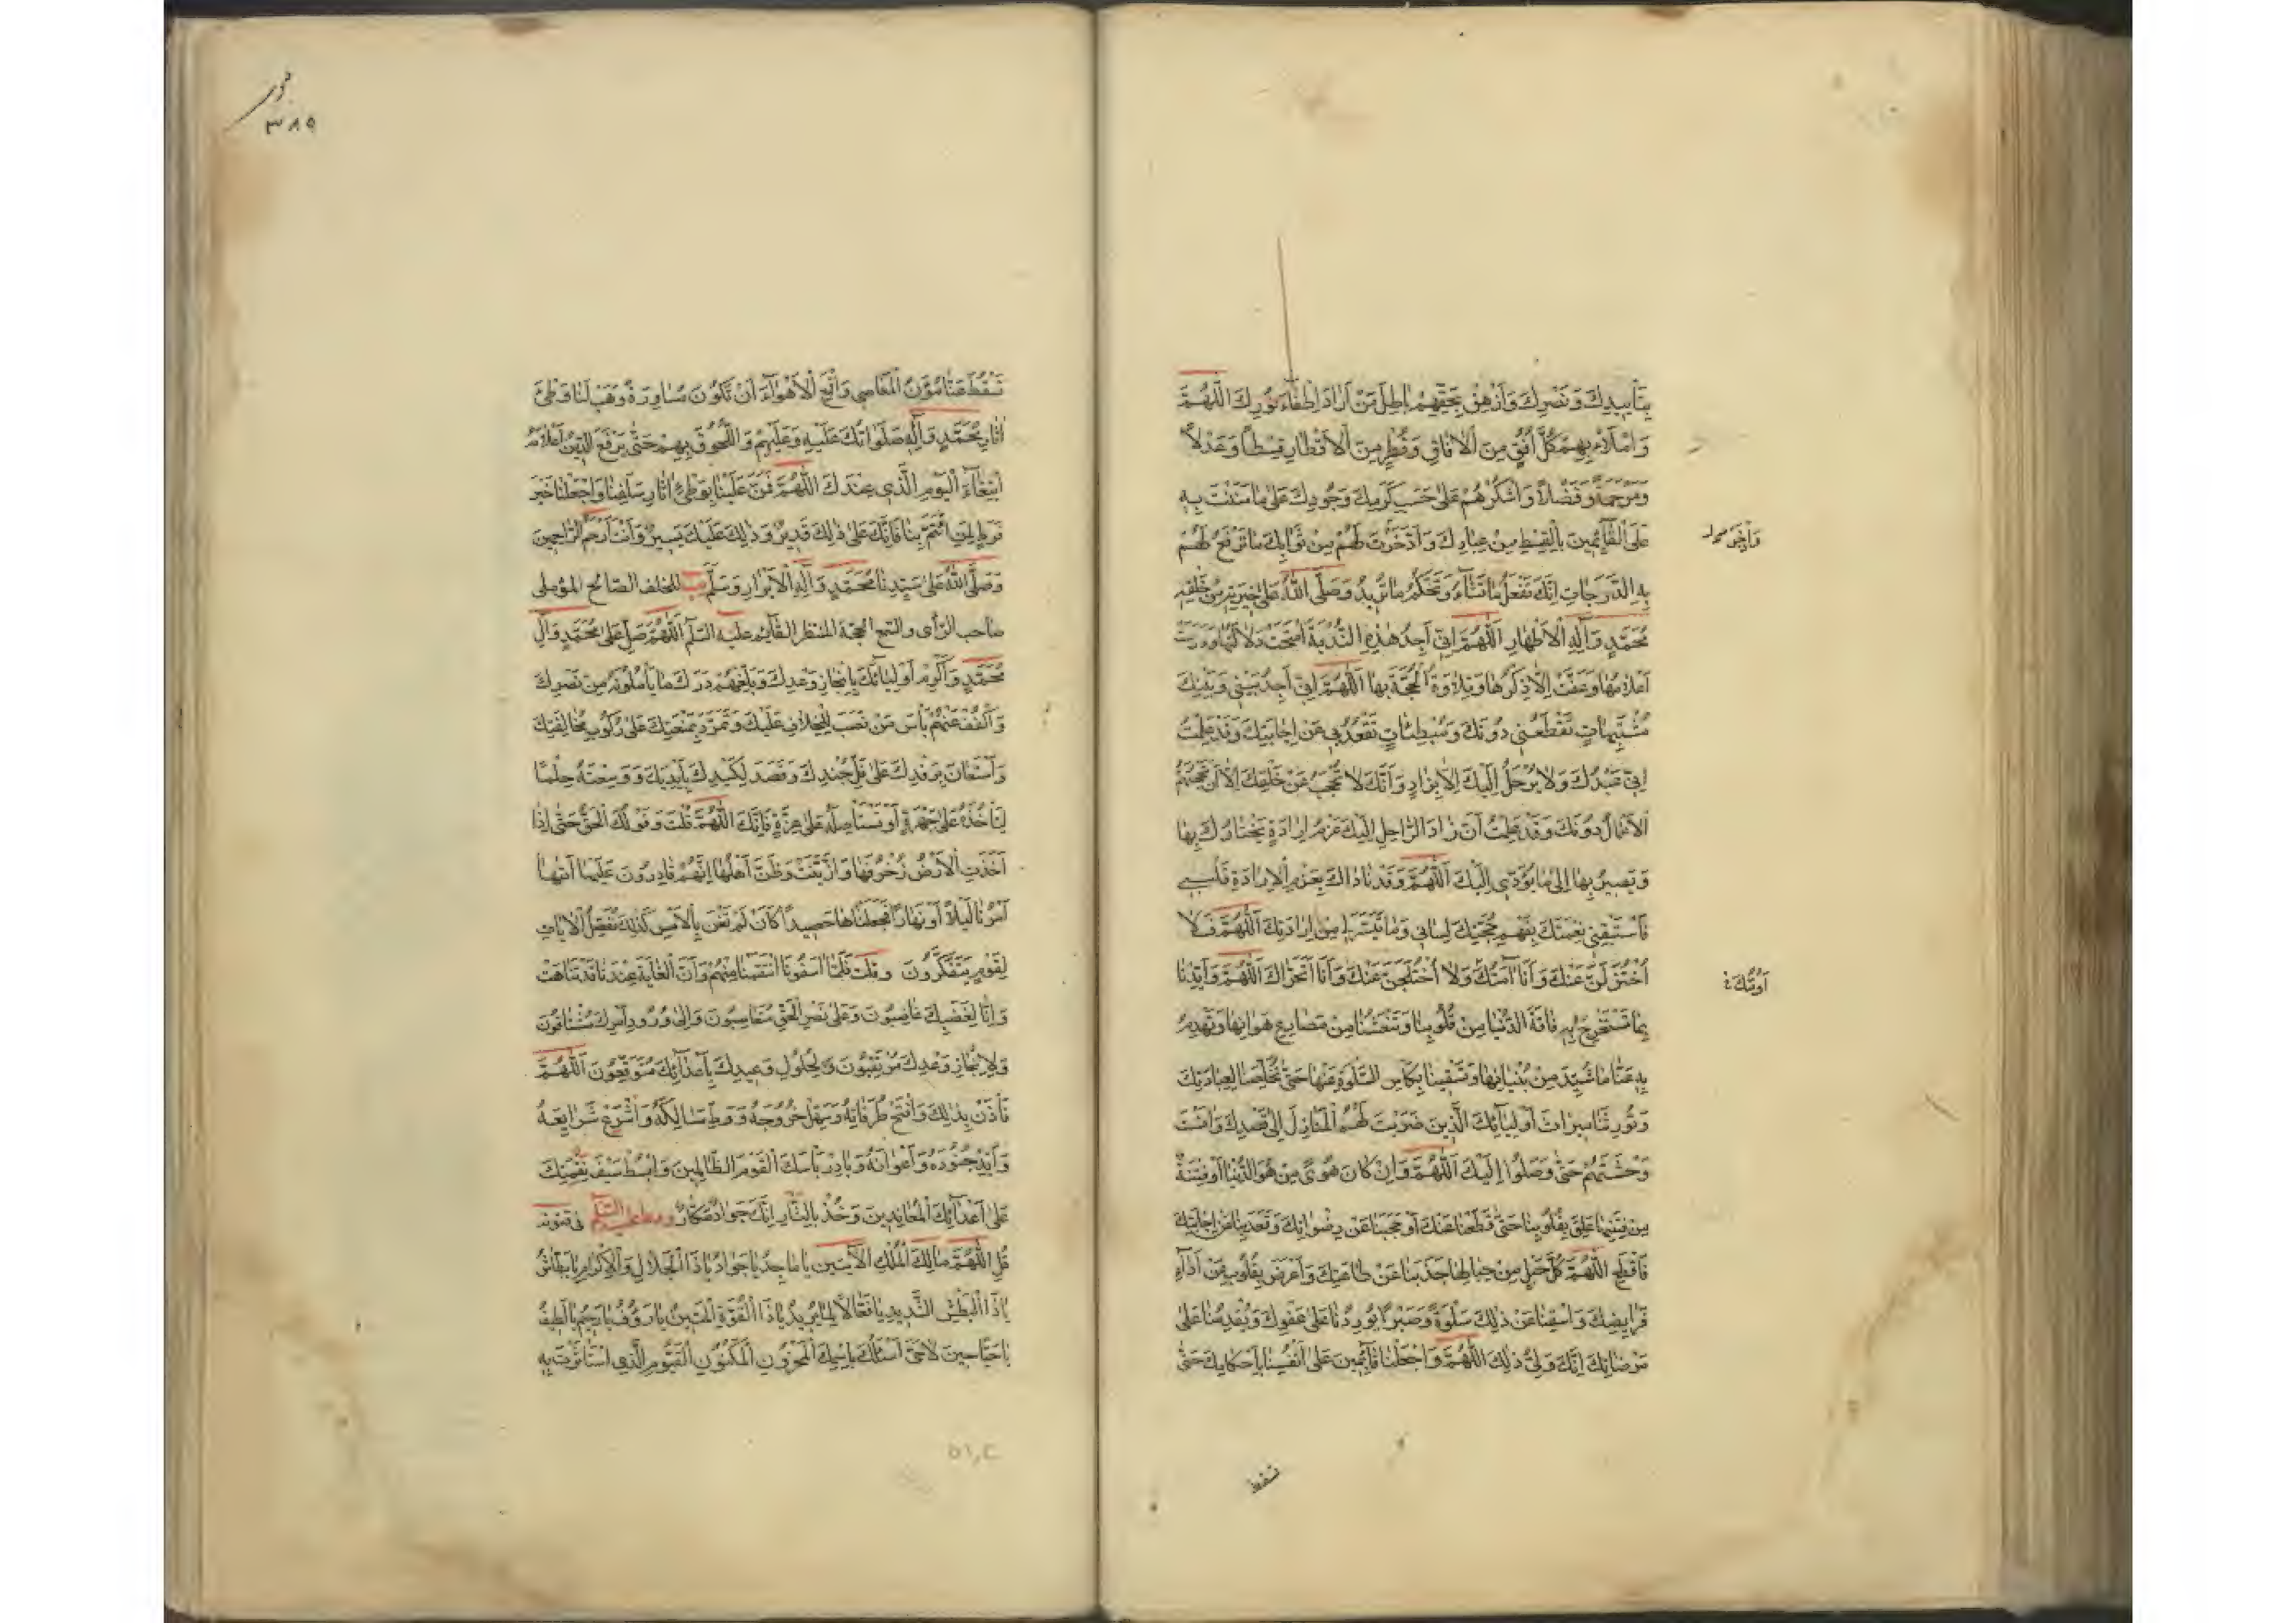 بِتَأْيِيدِكَ وَنَصْرِكَ وَأَزْهِقْ بِحَقِّهِمْ بَاطِلَ مَنْ أَرَادَ إِطْفَاءَ نُورِكَ اللَّهُمَّ
وَامْلَأْ بِهِمْ كُلَّ أُفُقٍ مِنَ الْآفَاقِ وَقُطْرٍ مِنَ الْأَقْطَارِ قِسْطًا وَعَدْلًا
وَمَرْحَمَةً وَفَضْلًا وَاشْكُرْهُمْ عَلَى حَسَبِ كَرَمِكَ وَجُودِكَ عَلَى مَا مَنَنْتَ بِهِ
عَلَى الْقَائِمِينَ بِالْقِسْطِ مِنْ عِبَادِكَ وَادَّخَرْتَ لَهُمْ مِنْ ثَوَابِكَ مَا تَرْفَعُ لَهُمْ
بِهِ الدَّرَجَاتِ إِنَّكَ تَفْعَلُ مَا تَشَاءُ وَتَحْكُمُ مَا تُرِيدُ وَصَلَّى اللَّهُ عَلَى خِيَرَتِهِ مِنْ خَلْقِهِ
مُحَمَّدٍ وَآلِهِ الْأَطْهَارِ اللَّهُمَّ إِنِّي أَجِدُ هَذِهِ النُّدْبَةَ امْتَحَتْ دَلَالَتُهَا وَدَرَسَتْ
أَعْلَامُهَا وَعَفَتْ إِلَّا ذِكْرُهَا وَتِلَاوَةُ الْحُجَّةِ بِهَا اللَّهُمَّ إِنِّي أَجِدُ بَيْنِي وَبَيْنَكَ
مُشْتَبِهَاتٍ تَقْطَعُنِي دُونَكَ وَمُبْطِئَاتٍ تَقْعُدُ بِي عَنْ إِجَابَتِكَ وَقَدْ عَلِمْتُ
أَنَّ عَبْدَكَ وَلَا يُرْحَلُ إِلَيْكَ إِلَّا بِزَادٍ وَأَنَّكَ لَا تُحْجَبُ عَنْ خَلْقِكَ إِلَّا أَنْ تَحْجُبَهُمُ
الْآمَالُ دُونَكَ وَقَدْ عَلِمْتُ أَنَّ زَادَ الرَّاحِلِ إِلَيْكَ عَزْمُ إِرَادَةٍ يَخْتَارُكَ بِهَا
وَيَصِيرُ بِهَا إِلَى مَا يُؤَدِّي إِلَيْكَ اللَّهُمَّ وَقَدْ نَادَاكَ بِعَزْمِ الْإِرَادَةِ قَلْبِي
فَاسْتَبْقِنِي نِعْمَتَكَ بِفَهْمِ حُجَّتِكَ لِسَانِي وَمَا تَيَسَّرَ لِي مِنْ إِرَادَتِكَ اللَّهُمَّ فَلَا
أُخْتَزَلَنَّ عَنْكَ وَأَنَا آمُّكَ وَلَا أُخْتَلَجَنَّ عَنْكَ وَأَنَا أَتَحَرَّاكَ اللَّهُمَّ وَأَيِّدْنَا
بِمَا تَسْتَخْرِجُ بِهِ فَاقَةَ الدُّنْيَا مِنْ قُلُوبِنَا وَتَنْعَشُنَا مِنْ مَصَارِعِ هَوَانِهَا وَتَهْدِمُ
بِهِ عَنَّا مَا شُيِّدَ مِنْ بُنْيَانِهَا وَتَسْقِينَا بِكَأْسِ السَّلْوَةِ عَنْهَا حَتَّى تُخَلِّصَنَا لِعِبَادَتِكَ
وَتُورِثَنَا مِيرَاثَ أَوْلِيَائِكَ الَّذِينَ ضَرَبْتَ لَهُمُ الْمَنَازِلَ إِلَى قَصْدِكَ وَآنَسْتَ
وَحْشَتَهُمْ حَتَّى وَصَلُوا إِلَيْكَ اللَّهُمَّ وَإِنْ كَانَ هَوًى مِنْ هَوَى الدُّنْيَا أَوْ فِتْنَةٌ
مِنْ فِتَنِهَا عَلِقَ بِقُلُوبِنَا حَتَّى قَطَعَنَا عَنْكَ أَوْ حَجَبَنَا عَنْ رِضْوَانِكَ وَقَعَدَ بِنَا عَنْ إِجَابَتِكَ
فَاقْطَعِ اللَّهُمَّ كُلَّ حَبْلٍ مِنْ حِبَالِهَا جَذَبَنَا عَنْ طَاعَتِكَ وَأَعْرَضَ بِقُلُوبِنَا عَنْ أَدَاءِ
فَرَائِضِكَ وَاسْقِنَا عَنْ ذَلِكَ سَلْوَةً وَصَبْرًا يُورِدُنَا عَلَى عَفْوِكَ وَيُقْدِمُنَا عَلَى
مَرْضَاتِكَ إِنَّكَ وَلِيُّ ذَلِكَ اللَّهُمَّ وَاجْعَلْنَا قَائِمِينَ عَلَى أَنْفُسِنَا بِأَحْكَامِكَ حَتَّى
أَؤُمُّكَ
تسقط
٣٨٥
تُسْقِطَ عَنَّا مُؤَنَ الْمَعَاصِي وَاقْمَعِ الْأَهْوَاءَ أَنْ تَكُونَ مُسَاوِرَةً وَهَبْ لَنَا وَطْئَ
آثَارِ مُحَمَّدٍ وَآلِهِ صَلَوَاتُكَ عَلَيْهِ وَعَلَيْهِمْ وَاللُّحُوقَ بِهِمْ حَتَّى يَرْفَعَ الدِّينُ أَعْلَامَهُ
ابْتِغَاءَ الْيَوْمِ الَّذِي عِنْدَكَ اللَّهُمَّ فَمُنَّ عَلَيْنَا بِوَطْئِ آثَارِ سَلَفِنَا وَاجْعَلْنَا خَيْرَ
فَرَطٍ لِمَنِ ائْتَمَّ بِنَا فَإِنَّكَ عَلَى ذَلِكَ قَدِيرٌ وَذَلِكَ عَلَيْكَ يَسِيرٌ وَأَنْتَ أَرْحَمُ الرَّاحِمِينَ
وَصَلَّى اللَّهُ عَلَى سَيِّدِنَا مُحَمَّدٍ وَآلِهِ الْأَبْرَارِ وَسَلَّمَ للخلف الصالح المؤملي
صاحب الرأي والسمع الحجة المنتظر القائم عليه السلم اللَّهُمَّ صَلِّ عَلَى مُحَمَّدٍ وَآلِ
مُحَمَّدٍ وَأَكْرِمْ أَوْلِيَائَكَ بِإِنْجَازِ وَعْدِكَ وَبَلِّغْهُمْ دَرَكَ مَا يَأْمُلُونَهُ مِنْ نَصْرِكَ
وَاكْفُفْ عَنْهُمْ بَأْسَ مَنْ نَصَبَ الْخِلَافَ عَلَيْكَ وَتَمَرَّدَ بِمَنْعِكَ عَلَى رُكُوبِ مُخَالَفَتِكَ
وَاسْتَعَانَ بِرِفْدِكَ عَلَى فَلِّ جُنْدِكَ وَقَصَدَ لِكَيْدِكَ بِأَيْدِكَ وَوَسِعْتَهُ حِلْمًا
لِتَأْخُذَهُ عَلَى جَهْرَةٍ أَوْ تَسْتَأْصِلَهُ عَلَى عِزَّةٍ فَإِنَّكَ اللَّهُمَّ قُلْتَ وَقَوْلُكَ الْحَقُّ حَتَّى إِذَا
أَخَذَتِ الْأَرْضُ زُخْرُفَهَا وَازَّيَّنَتْ وَظَنَّ أَهْلُهَا أَنَّهُمْ قَادِرُونَ عَلَيْهَا أَتَاهَا
أَمْرُنَا لَيْلًا أَوْ نَهَارًا فَجَعَلْنَاهَا حَصِيدًا كَأَنْ لَمْ تَغْنَ بِالْأَمْسِ كَذَلِكَ نُفَصِّلُ الْآيَاتِ
لِقَوْمٍ يَتَفَكَّرُونَ وَقُلْتَ فَلَمَّا آسَفُونَا انْتَقَمْنَا مِنْهُمْ وَأَنَّ الْغَايَةَ عِنْدَنَا قَدْ تَنَاهَتْ
وَإِنَّا لِغَضَبِكَ غَاضِبُونَ وَعَلَى نَصْرِ الْحَقِّ مُتَعَاصِبُونَ وَإِلَى وُرُودِ أَمْرِكَ مُشْتَاقُونَ
وَلِإِنْجَازِ وَعْدِكَ مُرْتَقِبُونَ وَلِحُلُولِ وَعِيدِكَ بِأَعْدَائِكَ مُتَوَقِّعُونَ اللَّهُمَّ
فَأْذَنْ بِذَلِكَ وَافْتَحْ طُرُقَاتِهِ وَسَهِّلْ خُرُوجَهُ وَوَطِّ مَسَالِكَهُ وَاشْرَعْ شَرَايِعَهُ
وَأَيِّدْ جُنُودَهُ وَأَعْوَانَهُ وَبَادِرْ بَأْسَكَ الْقَوْمَ الظَّالِمِينَ وَابْسُطْ سَيْفَ نَقِمَتِكَ
عَلَى أَعْدَائِكَ الْمُعَانِدِينَ وَخُذْ بِالثَّارِ إِنَّكَ جَوَادٌ مَكَّارٌ ودعا عليه السلم في قنوته
قُلِ اللَّهُمَّ مَالِكَ الْمُلْكِ الْآيَتَيْنِ يَا مَاجِدُ يَا جَوَادُ يَا ذَا الْجَلَالِ وَالْإِكْرَامِ يَا بَطَّاشُ
يَا ذَا الْبَطْشِ الشَّدِيدِ يَا فَعَّالًا لِمَا يُرِيدُ يَا ذَا الْقُوَّةِ الْمَتِينُ يَا رَؤُوفُ يَا رَحِيمُ يَا لَطِيفُ
يَا حَيًّا حِينَ لَا حَيَّ أَسْأَلُكَ بِاسْمِكَ الْمَخْزُونِ الْمَكْنُونِ الْقَيُّومِ الَّذِي اسْتَأْثَرْتَ بِهِ